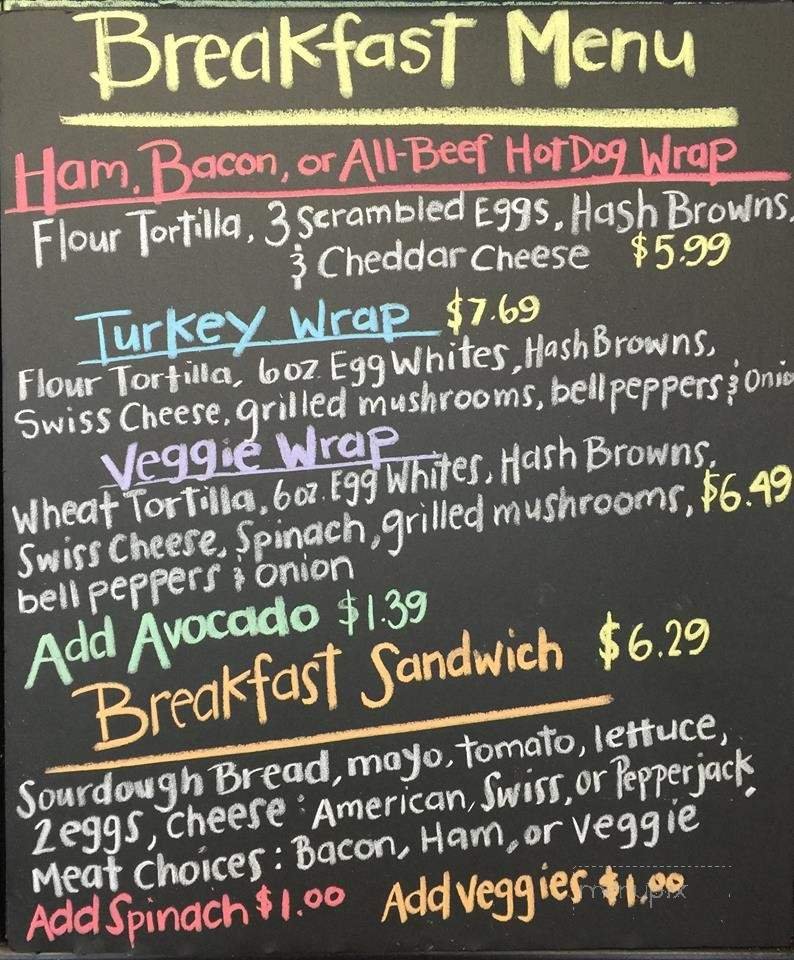 Breakfast Menu
Ham, Bacon, or All-Beef HotDog Wrap
Flour Tortilla, 3 Scrambled Eggs, Hash Browns,
& Cheddar Cheese $5.99
Turkey Wrap $7.69
Flour Tortilla, 6oz. Egg Whites, Hash Browns,
Swiss Cheese, grilled mushrooms, bell peppers & Onio
Veggie Wrap
Wheat Tortilla, 6oz. Egg Whites, Hash Browns,
Swiss Cheese, Spinach, grilled mushrooms, $6.49
bell peppers & onion
Add Avocado $1.39
Breakfast Sandwich $6.29
Sourdough Bread, mayo, tomato, lettuce,
2 eggs, cheese: American, Swiss, or Pepperjack.
Meat Choices: Bacon, Ham, or veggie
Add Spinach $1.00 Add veggies $1.00
menupix